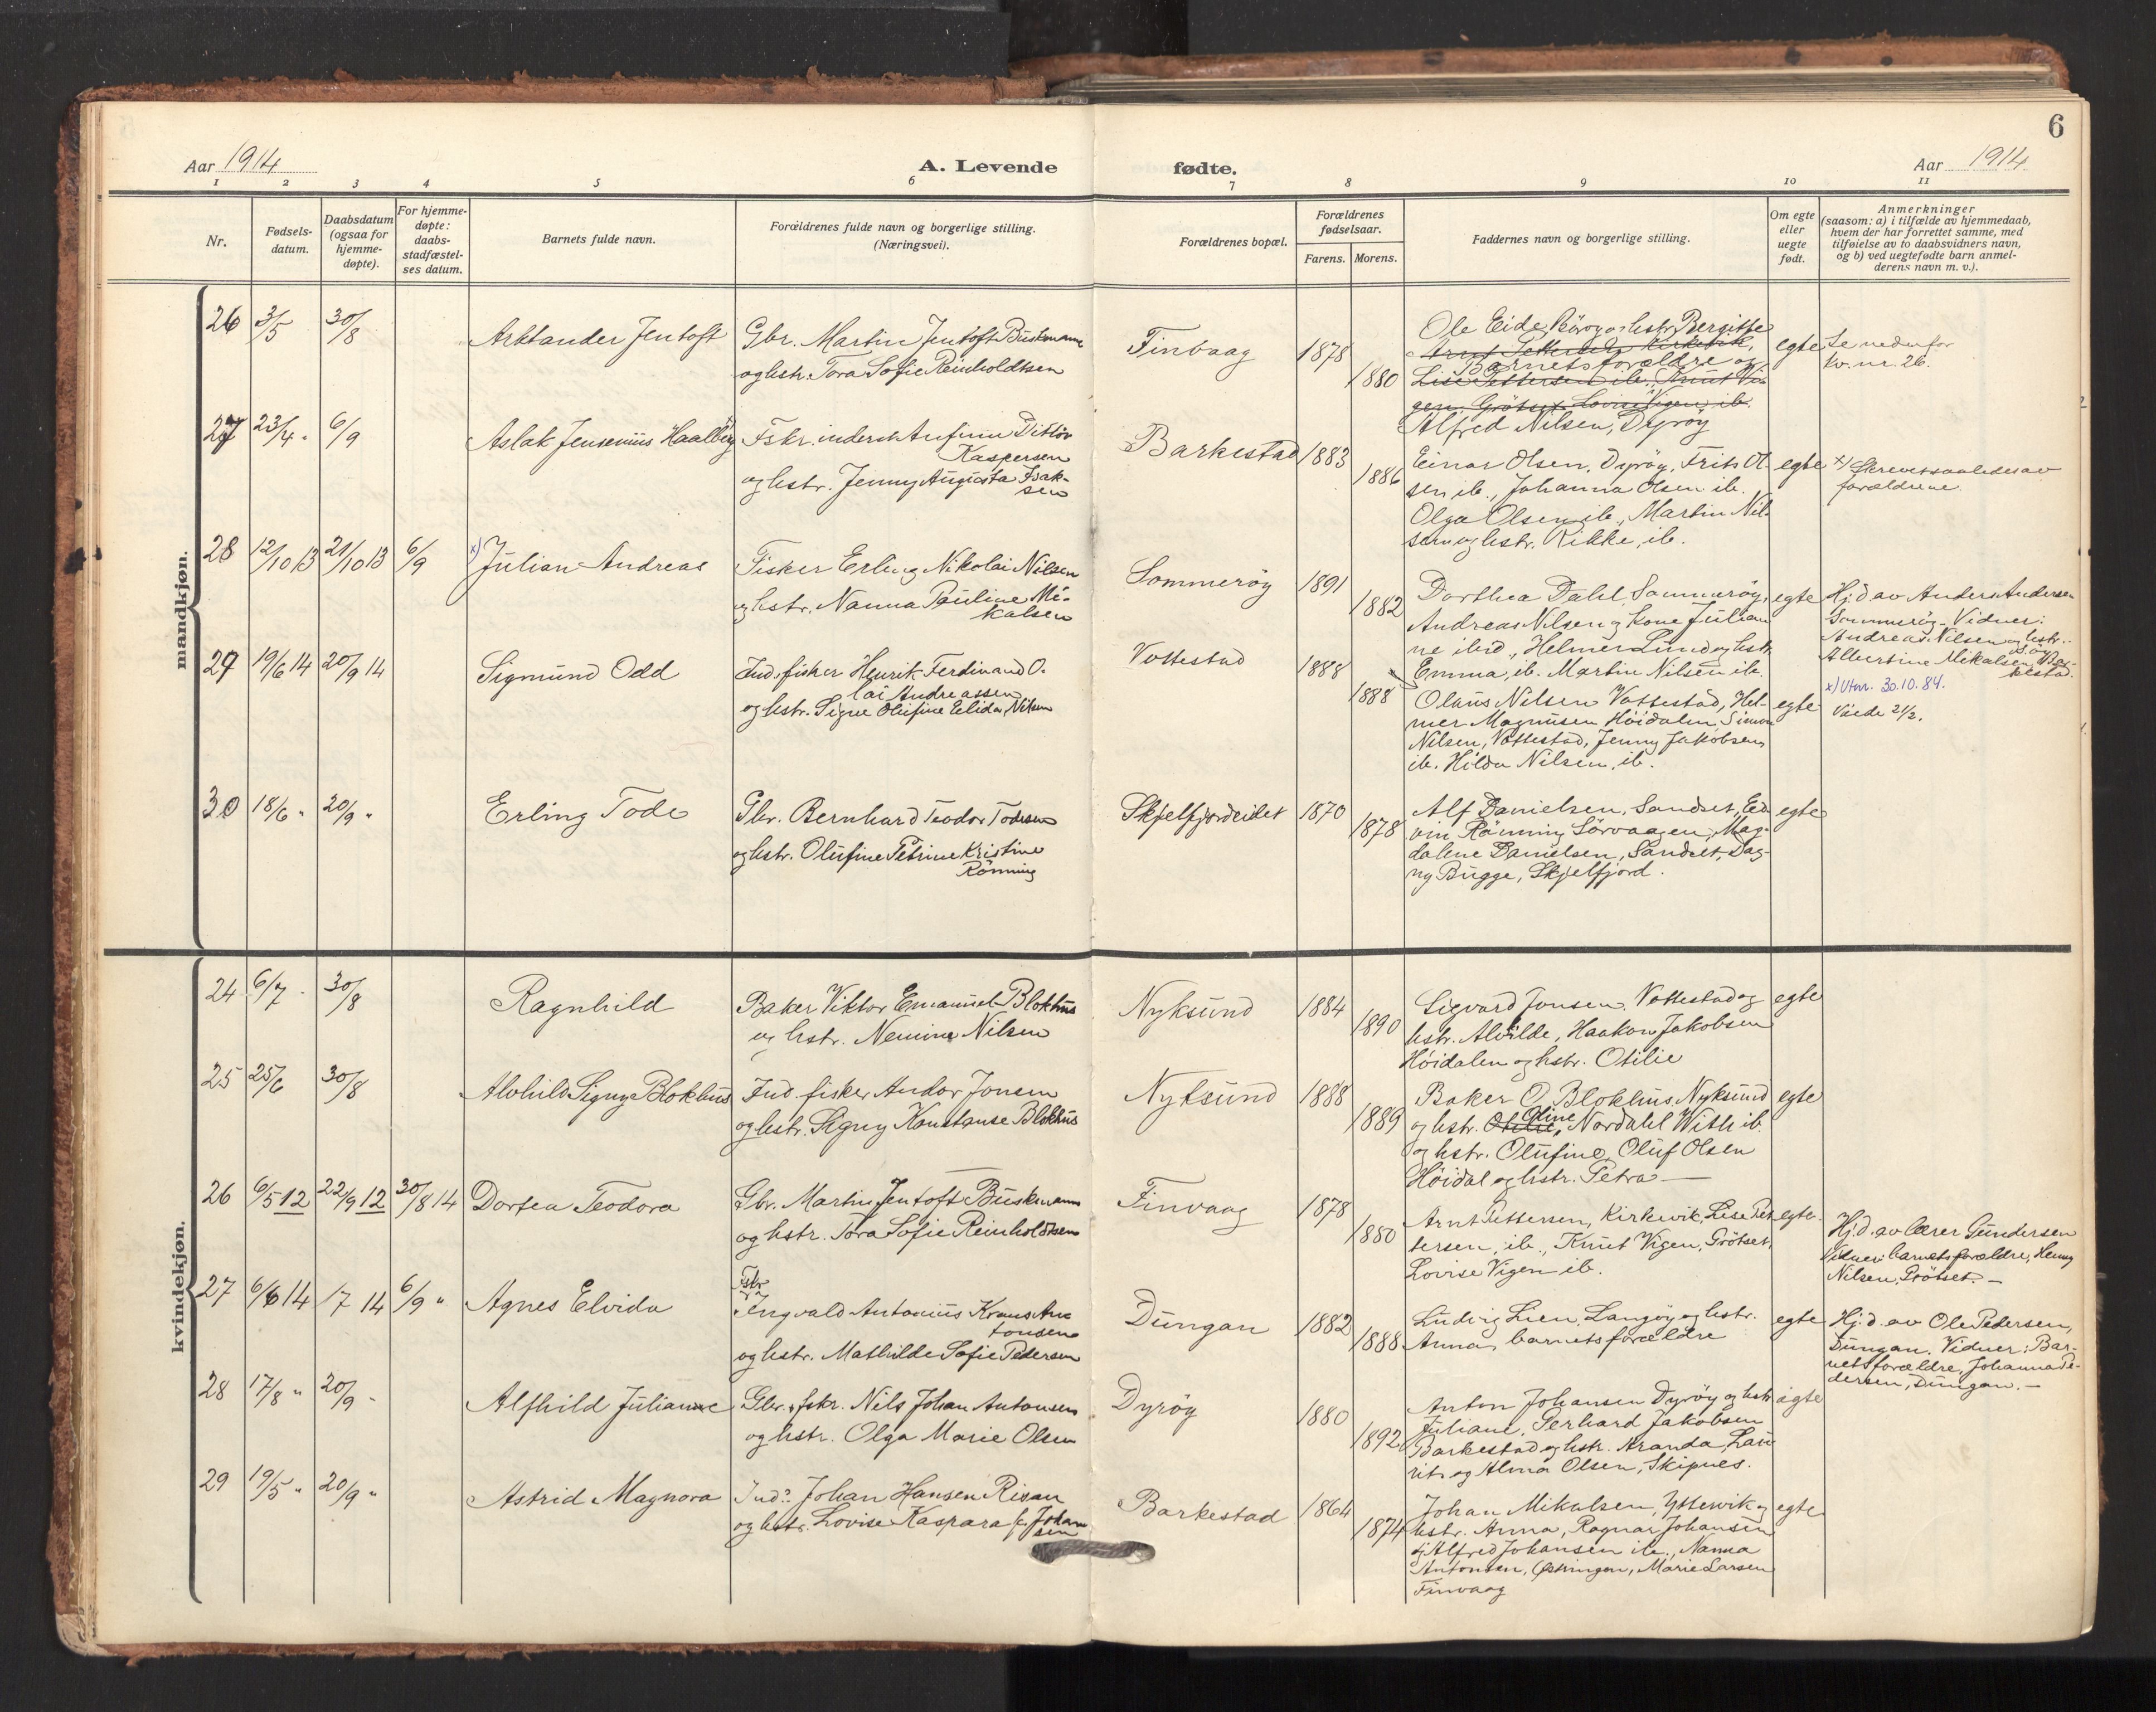 6
Aar 1914
A. Levende
fødte.
Aar 1914
1 2 3 4 5 6 7 8 9 10 11
Nr.
Fødsels-
datum.
Daabsdatum
(ogsaa for
hjemme-
døpte).
For hjemme-
døpte:
daabs-
stadfæstel-
ses datum.
Barnets fulde navn.
Forældrenes fulde navn og borgerlige stilling.
(Næringsvei).
Forældrenes bopæl.
Forældrenes
fødselsaar.
Farens. Morens.
Faddernes navn og borgerlige stilling.
Om egte
eller
uegte
født.
Anmerkninger
(saasom: a) i tilfælde av hjemmedaab,
hvem der har forrettet samme, med
tilføielse av to daabsvidners navn,
og b) ved uegtefødte barn anmel-
derens navn m. v.).
mandkjøn.
26 3/5 30/8
Arktander Jentoft
Gbr. Martin Jentoft Buskmann
og hstr. Tora Sofie Reinholdtsen
Finvaag
1878
1880
Ole Eide, og hstr. Bergitte
Arnt Pettersen Kirkevik,
Barnets forældre og
Lise Pettersen ib. Knut Vi-
gen, Grötset, Lovise Vigen ib.
Alfred Nilsen, Dyröy
egte
Se nedenfor
kv. nr. 26.
27 23/4 " 6/9
Aslak Jensenius Haalberg
Fskr. indersk Anfinn Ditlöv
Kaspersen
og hstr. Jenny Augusta Isak-
sen
Barkestad
1883
1886
Einar Olsen, Dyröy, Frits Ol-
sen ib., Johanna Olsen ib.
Olga Olsen ib., Martin Nil-
sen og hstr. Rikke, ib.
egte
x) Skrevet saaledes av
forældrene.
28 12/10 13 21/10 13 6/9
x) Julian Andreas
Fisker Erling Nikolai Nilsen
og hstr. Nanna Pauline Mi-
kalsen
Sommeröy
1891
1882
Dorthea Dahl, Sommeröy,
Andreas Nilsen og kone Julian
ne ibid, Helmer Lund og hstr.
Emma, ib. Martin Nilsen ib.
egte
Hj.d av Anders Andersen
Sommeröy. Vidner:
Andreas Nilsen og hstr.
Albertine Mikalsen, Bar-
kestad.
x) Utm. 30.10.84.
29 19/6 14 20/9 14
Sigmund Odd
Ind. fisker Henrik Ferdinand O-
lai Andreassen
og hstr. Signe Olufine Elida Nilsen
Vottestad
1888
1888
Olaus Nilsen Vottestad, Hel-
mer Magnusen Höidalen, Simon
Nilsen, Vottestad, Jenny Jakobsen
ib. Hilda Nilsen, ib.
egte
30 18/6 " 20/9 "
Erling Tode
Gbr. Bernhard Teodor Todesen
og hstr. Olufine Petrine Kristine
Rönning
Skjelfjordeidet
1870
1878
Alf Danielsen, Sandset, Ed-
vin Rönning Sörvaagen, Mag-
dalene Danielsen, Sandset, Dag-
ny Bugge, Skjelfjord.
egte
kvindekjøn.
24 6/7 30/8
Ragnhild
Baker Viktor Emanuel Blokhus
og hstr. Nemine Nilsen
Nyksund
1884
1890
Sigvard Jonsen, Vottestad og
hstr. Alvilde, Haakon Jakobsen
Höidalen og hstr. Otilie
egte
25 25/6 30/8
Alvhild Signy Blokhus
Ind. fisker Andor Jonsen
og hstr. Signy Konstanse Blokhus
Nyksund
1888
1889
Baker O. Blokhus, Nyksund
og hstr. Otilie, Oline Nordahl With ib.
og hstr. Olufine, Oluf Olsen
Höidal og hstr. Petra —
egte
26 6/5 12 22/9 12 30/8 14
Dortea Teodora
Gbr. Martin Jentoft Buskmann
og hstr. Tora Sofie Reinholdtsen
Finvaag
1878
1880
Arnt Pettersen, Kirkevik, Lise Pet-
tersen, ib., Knut Vigen, Grötset,
Lovise Vigen ib.
egte
Hj.d. av lærer Gundersen
Vidner: barnets forældre, Henny
Nilsen, Grötset. —
27 6/6 14 /7 14 6/9 "
Agnes Elvida
Fskr.
Ingvald Antonius Krans An-
tonsen
og hstr. Mathilde Sofie Pedersen
Dungan
1882
1888
Ludvig Lien, Langöy og hstr.
Anna, barnets forældre
egte
Hj.d. av Ole Pedersen,
Dungan. Vidner: Bar-
nets forældre, Johanna Pe-
dersen, Dungan. —
28 17/8 " 20/9 "
Alfhild Julianne
Gbr. fskr. Nils Johan Antonsen
og hstr. Olga Marie Olsen
Dyröy
1880
1892
Anton Johansen Dyröy og hstr.
Juliane, Gerhard Jakobsen
Barkestad og hstr. Aranda, Lau-
rits og Alma Olsen, Skipnes.
egte
29 19/5 " 20/9 "
Astrid Magnora
Ind. Johan Hansen Risan
og hstr. Lovise Kaspara f. Johan
sen
Barkestad
1864
1874
Johan Mikalsen, Yttervik og
hstr. Anna, Ragnar Johansen
og Alfred Johansen ib., Nanna
Antonsen, Marie Larsen
Finvaag
egte